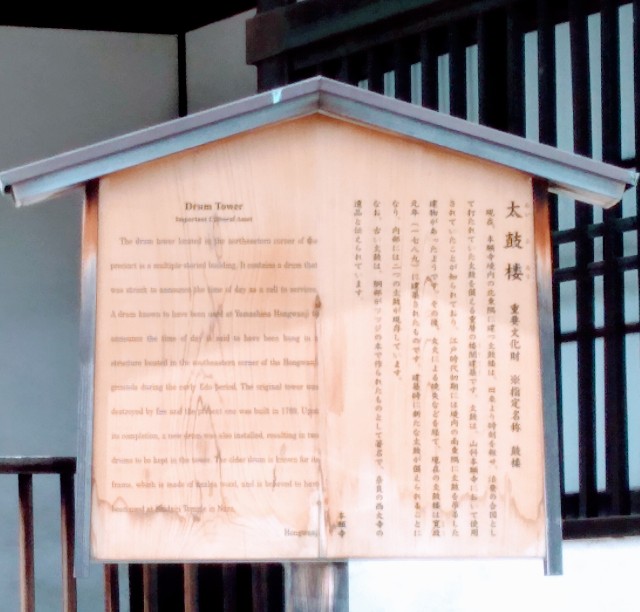 Drum Tower
Important Cultural Asset
The drum tower located in the northeastern corner of the
precinct is a multiple storied building. It contains a drum that
was struck to announce the time of day as a call to services.
A drum known to have been used at Yamashina Hongwanji to
announce the time of day is said to have been hung in a
structure located in the southeastern corner of the Hongwanji
grounds during the early Edo period. The original tower was
destroyed by fire and the present one was built in 1789. Upon
its completion, a new drum was also installed, resulting in two
drums to be kept in the tower. The older drum is known for its
frame, which is made of azalea wood, and is believed to have
at Saidaiji Temple in Nara.
Hongwanji
太鼓楼 重要文化財 ※指定名称 鼓楼
たいころう
現在、本願寺境内の北東隅に建つ太鼓楼は、四方に時刻を報せ、法要の合図とし
て打たれていた太鼓を備える重層の楼閣建築です。太鼓は、山科本願寺において使用
されていたことが知られており、江戸時代初期には境内の南東隅に太鼓を吊るした
建物があったようです。その後、火災による焼失などを経て、現在の太鼓楼は寛政
元年(一七八九)に建築されたものです。建築時に新たな太鼓が備えられることに
なり、内部には二つの太鼓が現存しています。
なお、古い太鼓は、胴部がツツジの木で作られたものとして著名で、奈良の西大寺の
遺品と伝えられています。
本願寺